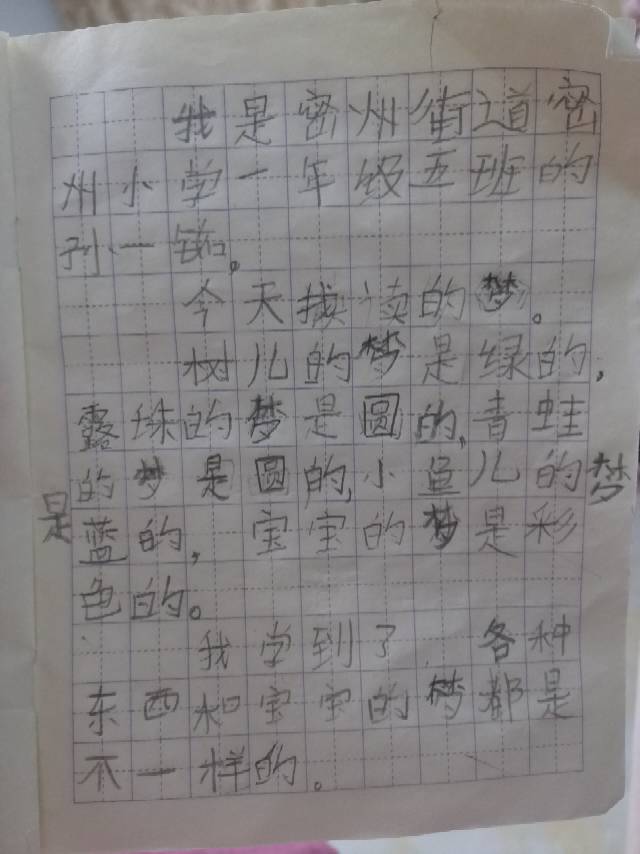 我是密州街道密
州小学一年级五班的
孙一铭。
今天我读的梦。
树儿的梦是绿的,
露珠的梦是圆的,青蛙
的梦是圆的,小鱼儿的梦
是蓝的,宝宝的梦是彩
色的。
我学到了 各种
东西和宝宝的梦都是
不一样的。